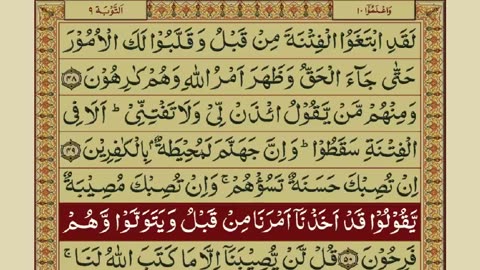 وَاعْلَمُوْٓا ١٠
اَلتَّوْبَة ٩
لَقَدِ ابْتَغَوُا الْفِتْنَةَ مِنْ قَبْلُ وَ قَلَّبُوْا لَكَ الْاُمُوْرَ
حَتّٰى جَآءَ الْحَقُّ وَ ظَهَرَ اَمْرُ اللّٰهِ وَ هُمْ كٰرِهُوْنَ ﴿۴۸﴾
وَ مِنْهُمْ مَّنْ يَّقُوْلُ ائْذَنْ لِّيْ وَ لَا تَفْتِنِّيْ ؕ اَلَا فِي
الْفِتْنَةِ سَقَطُوْا ؕ وَ اِنَّ جَهَنَّمَ لَمُحِيْطَةٌۢ بِالْكٰفِرِيْنَ ﴿۴۹﴾
اِنْ تُصِبْكَ حَسَنَةٌ تَسُؤْهُمْ ۚ وَ اِنْ تُصِبْكَ مُصِيْبَةٌ
يَّقُوْلُوْا قَدْ اَخَذْنَاۤ اَمْرَنَا مِنْ قَبْلُ وَ يَتَوَلَّوْا وَّ هُمْ
فَرِحُوْنَ ﴿۵۰﴾ قُلْ لَّنْ يُّصِيْبَنَاۤ اِلَّا مَا كَتَبَ اللّٰهُ لَنَا ۚ